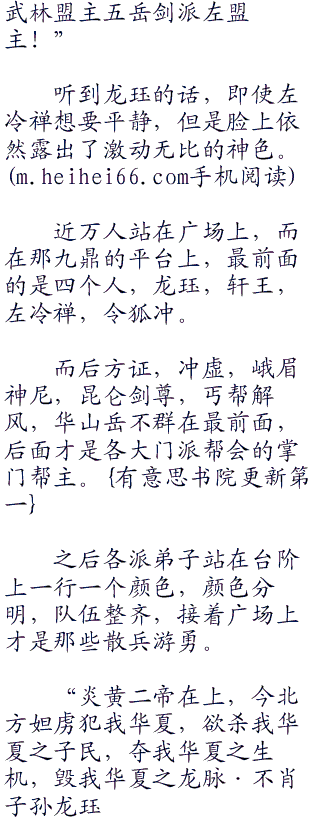 武林盟主五岳剑派左盟
主！”
听到龙珏的话，即使左
冷禅想要平静，但是脸上依
然露出了激动无比的神色。
(m.heihei66.com手机阅读)
近万人站在广场上，而
在那九鼎的平台上，最前面
的是四个人，龙珏，轩王，
左冷禅，令狐冲。
而后方证，冲虚，峨眉
神尼，昆仑剑尊，丐帮解
风，华山岳不群在最前面，
后面才是各大门派帮会的掌
门帮主。{有意思书院更新第
一}
之后各派弟子站在台阶
上一行一个颜色，颜色分
明，队伍整齐，接着广场上
才是那些散兵游勇。
“炎黄二帝在上，今北
方妲虏犯我华夏，欲杀我华
夏之子民，夺我华夏之生
机，毁我华夏之龙脉·不肖
子孙龙珏